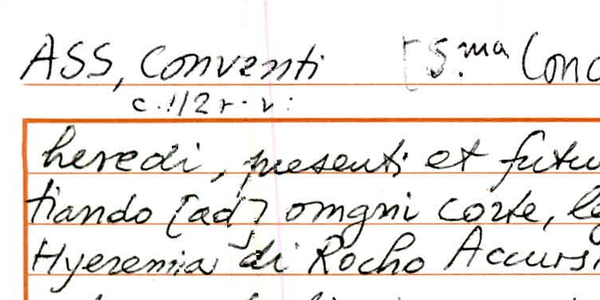 ASS, Conventi [S.ma Conc
c. 112 r - v:
heredi, presenti et futu
tiando [ad] omgni corte, le
Hyeremia di Rocho Accurs